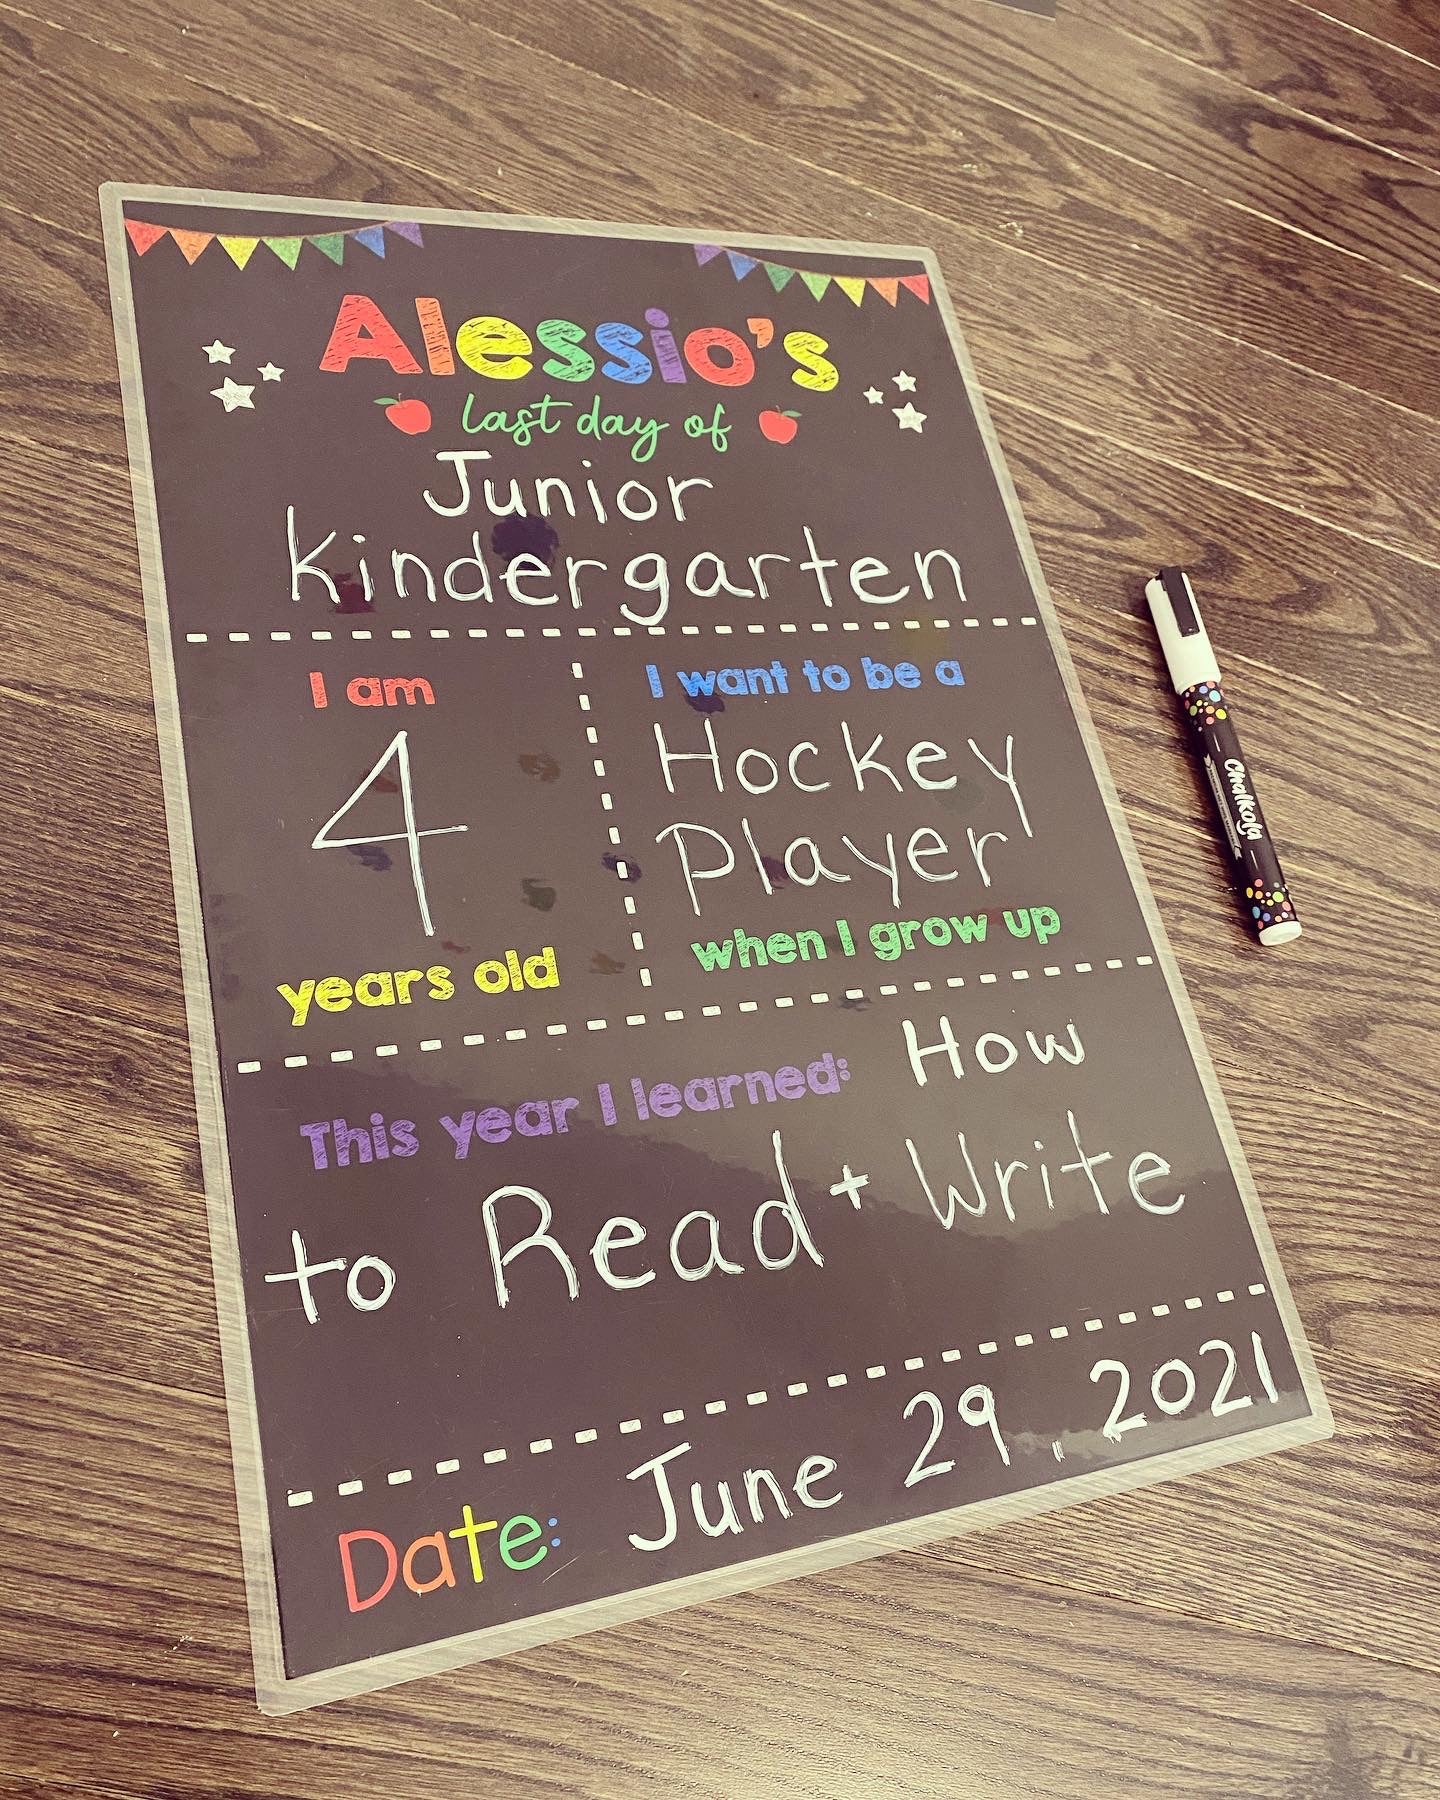 Alessio's
last day of
Junior
Kindergarten
I am
4
years old
I want to be a
Hockey
Player
when I grow up
This year I learned: How
to Read + Write
Date: June 29, 2021
Chalkola